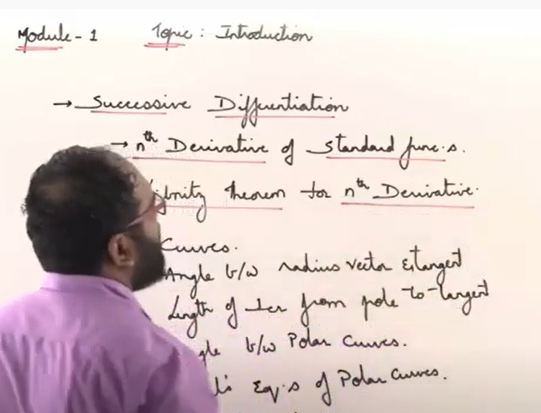 Module - 1 Topic : Introduction
→ Successive Differentiation
→ nth Derivative of standard func.s.
ibnitz theorem for nth Derivative.
Curves.
Angle b/w radius vector & tangent
Length of ⊥er from pole to tangent
gle b/w Polar Curves.
l's Eq.s of Polar Curves.